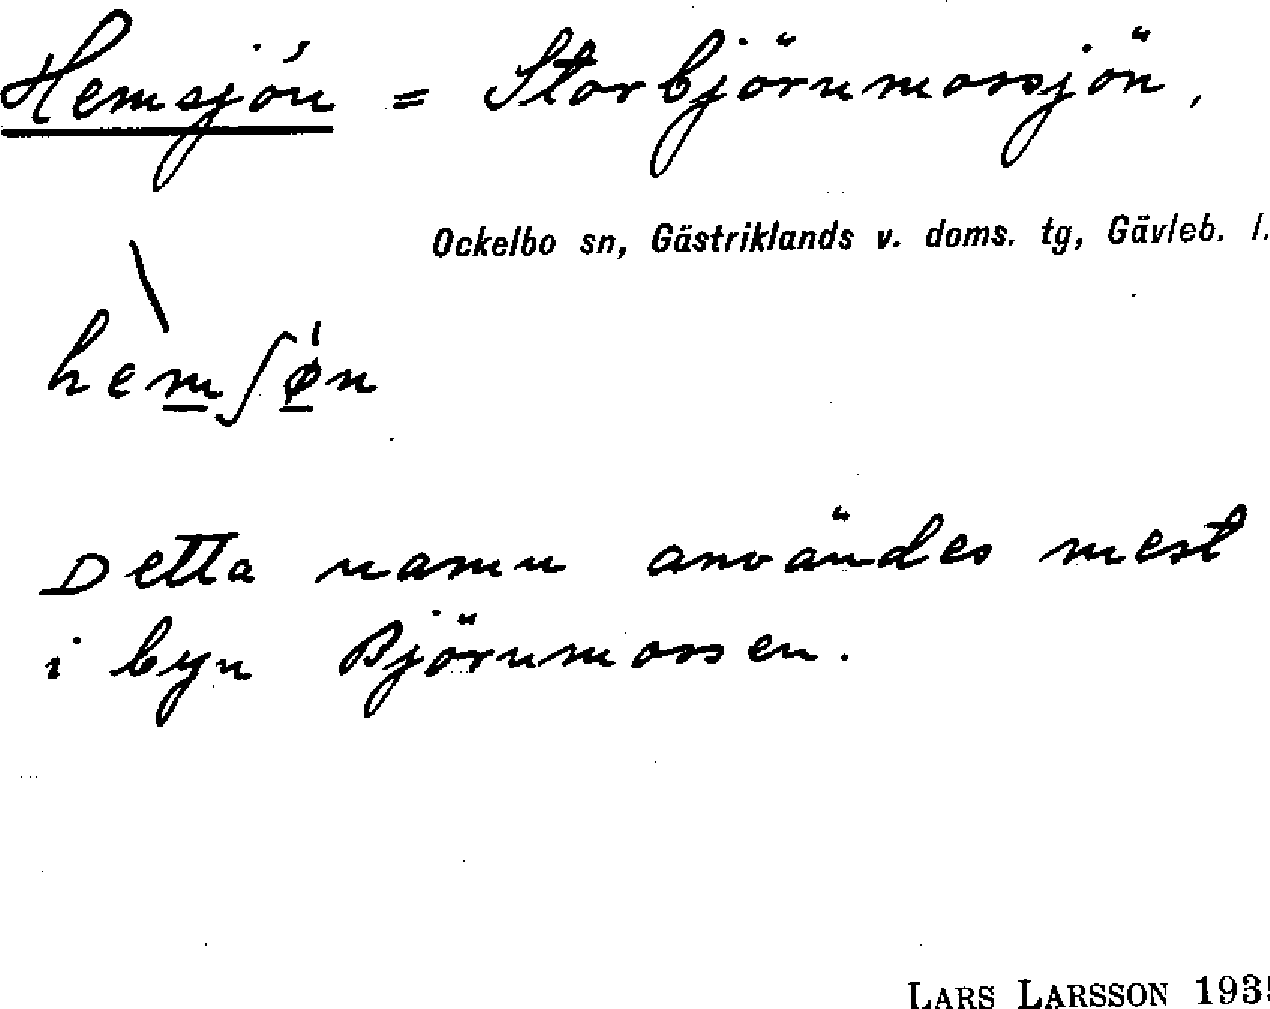 Hemsjön = Storbjörnmorsjön,
Ockelbo sn, Gästriklands v. doms. tg, Gävleb. l.
hemʃøn
Detta namn användes mest
i byn Björnmossen.
LARS LARSSON 193